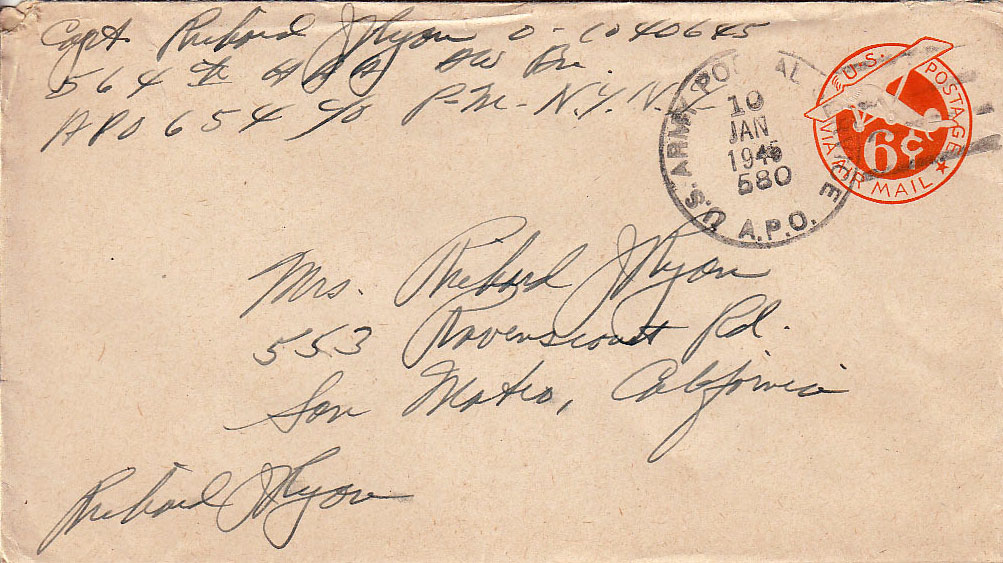 Capt. Richard J Ryon O-1040645
564 th AAA AW Bn.
APO 654 c/o P.M. N.Y. N.Y.
U.S. ARMY POSTAL
10
JAN
1945
580
A.P.O.
U.S. POSTAGE
6¢
VIA AIR MAIL
Mrs. Richard J Ryon
553 Ravenscourt Rd.
San Mateo, California
Richard J Ryon